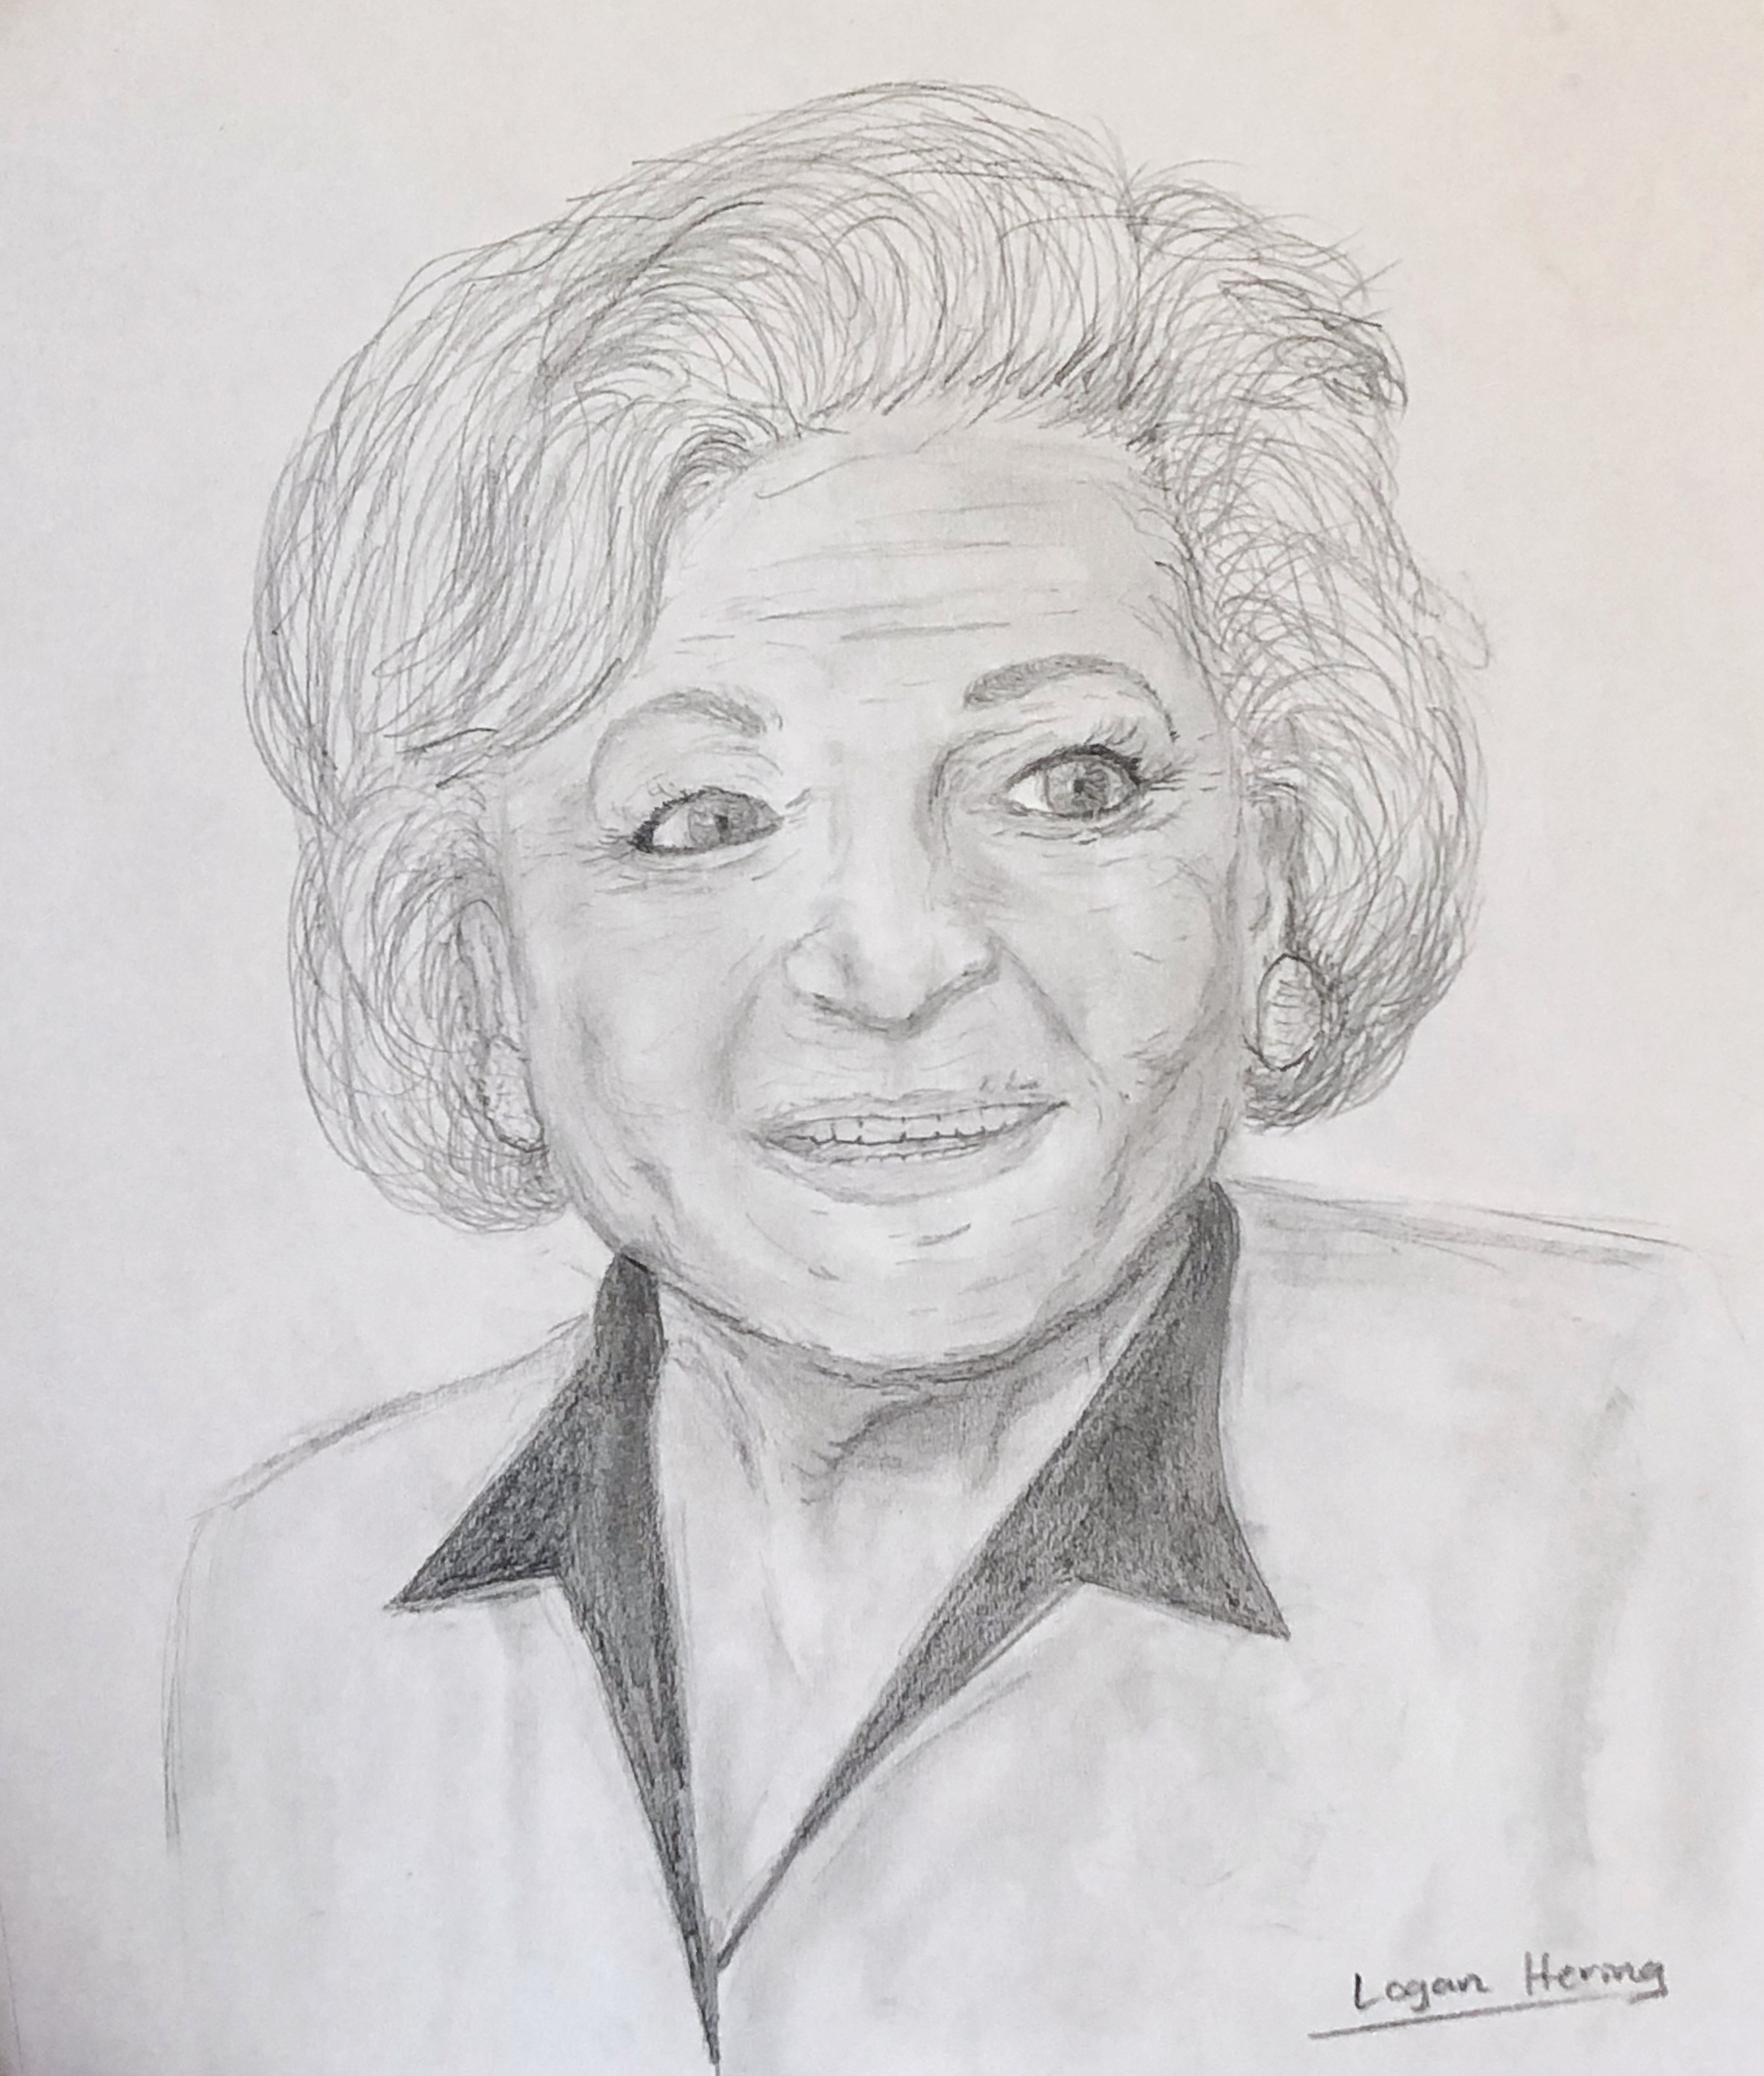 Logan Hering